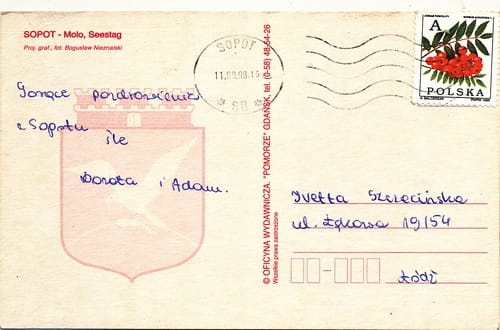 SOPOT - Molo, Seestag
Proj. graf., fot. Bogusław Nieznalski
Gorące pozdrowienia
z Sopotu śle
Dorota i Adam.
© OFICYNA WYDAWNICZA "POMORZE" GDAŃSK, tel. (0-58) 48-54-26
Wszelkie prawa zastrzeżone
SOPOT
* SB *
A
POLSKA
Ivetta Szczecińska
ul. Łąkowa 19/54
Łódź